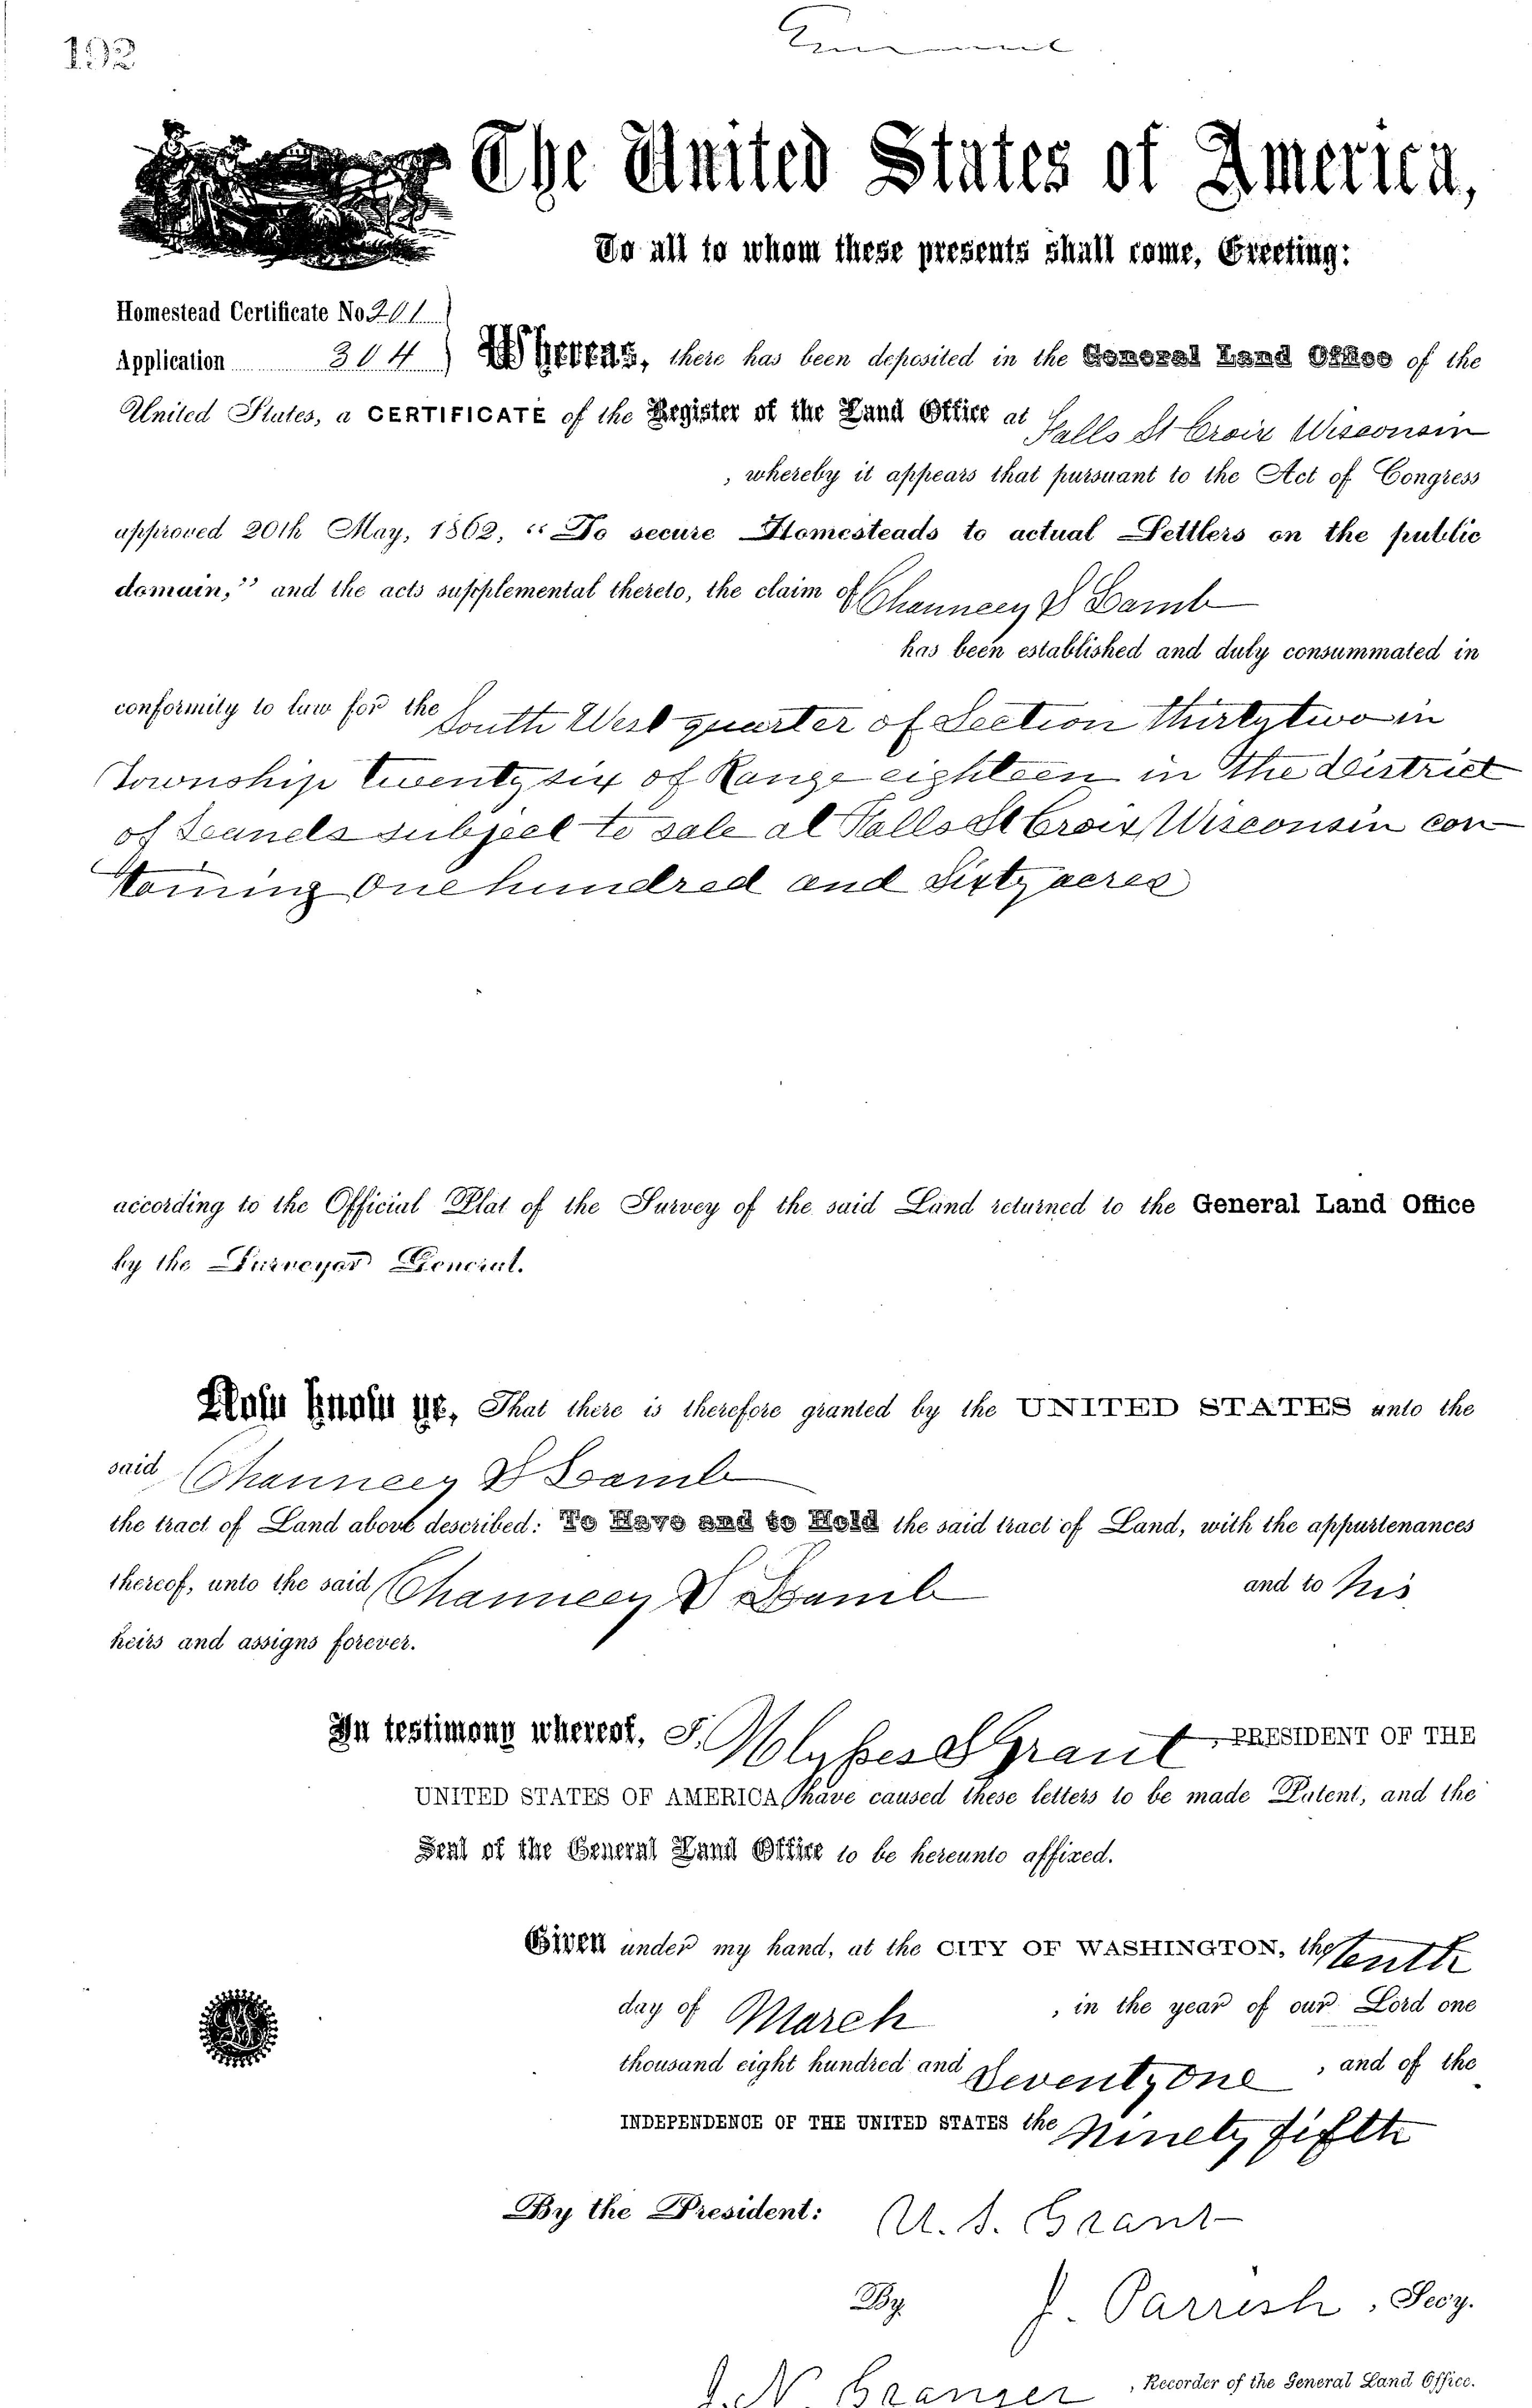 192
The United States of America,
To all to whom these presents shall come, Greeting:
Homestead Certificate No 201
Application 304 Whereas, there has been deposited in the General Land Office of the
United States, a CERTIFICATE of the Register of the Land Office at Falls St Croix Wisconsin
, whereby it appears that pursuant to the Act of Congress
approved 20th May, 1862, "To secure Homesteads to actual Settlers on the public
domain," and the acts supplemental thereto, the claim of Chauncey D Lamb
has been established and duly consummated in
conformity to law for the South West quarter of Section thirty two in
Township twenty six of Range eighteen in the District
of Lands subject to sale at Falls St Croix Wisconsin con
taining One hundred and Sixty acres
according to the Official Plat of the Survey of the said Land returned to the General Land Office
by the Surveyor General.
Now know ye, That there is therefore granted by the UNITED STATES unto the
said Chauncey D Lamb
the tract of Land above described: To Have and to Hold the said tract of Land, with the appurtenances
thereof, unto the said Chauncey D Lamb and to his
heirs and assigns forever.
In testimony whereof, I, Ulysses S Grant, PRESIDENT OF THE
UNITED STATES OF AMERICA, have caused these letters to be made Patent, and the
Seal of the General Land Office to be hereunto affixed.
Given under my hand, at the CITY OF WASHINGTON, the tenth
day of March , in the year of our Lord one
thousand eight hundred and Seventy One , and of the
INDEPENDENCE OF THE UNITED STATES the Ninety fifth
By the President: U. S. Grant
By J. Parrish, Secy.
J. N. Granger, Recorder of the General Land Office.